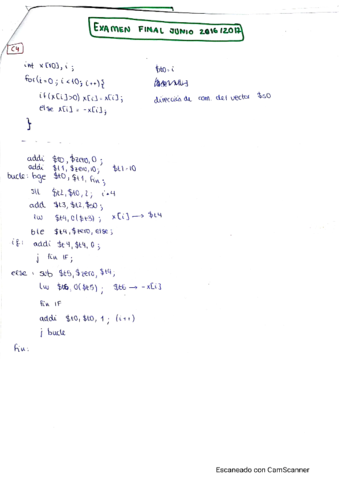 EXAMEN FINAL JUNIO 2016/2017
C4
int x[10], i;
for(i=0; i<10; i++){
if(x[i]>0) x[i]=x[i];
else x[i] = -x[i];
}
$t0: i
dirección de mem. del vector $s0
addi $t0, $zero, 0;
addi $t1, $zero, 10; $t1=10
bucle: bge $t0, $t1, fin;
sll $t2, $t0, 2; i*4
add $t3, $t2, $s0;
lw $t4, 0($t3); x[i] → $t4
ble $t4, $zero, else;
if: addi $t4, $t4, 0;
j fin IF;
else: sub $t5, $zero, $t4;
lw $t6, 0($t5); $t6 → -x[i]
fin IF
addi $t0, $t0, 1; (i++)
j bucle
fin:
Escaneado con CamScanner